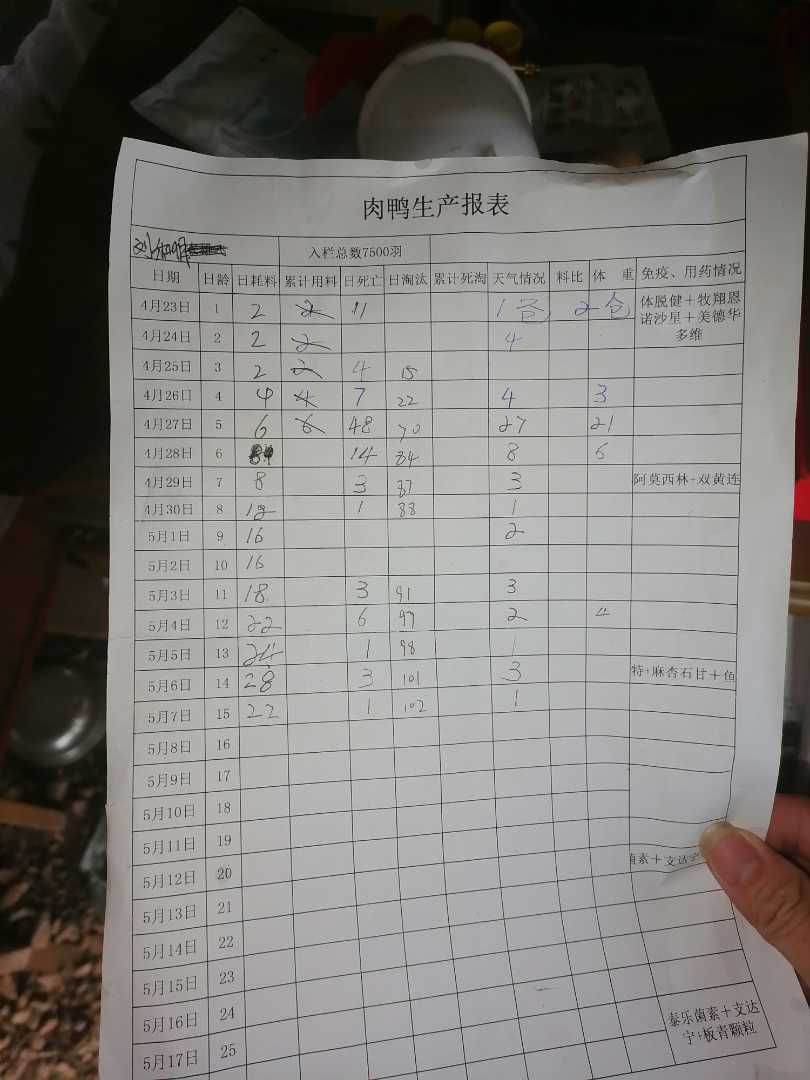 肉鸭生产报表
入栏总数7500羽
日期 日龄 日耗料 累计用料 日死亡 日淘汰 累计死淘 天气情况 料比 体 重 免疫、用药情况
4月23日 1 2 2 11 1仓 2仓 体脱健+牧翔恩
诺沙星+美德华
多维
4月24日 2 2 2 4
4月25日 3 2 2 4 15
4月26日 4 4 4 7 22 4 3
4月27日 5 6 6 48 70 27 21
4月28日 6 14 84 8 6
4月29日 7 8 3 87 3 阿莫西林+双黄连
4月30日 8 12 1 88 1
5月1日 9 16 2
5月2日 10 16
5月3日 11 18 3 91 3
5月4日 12 22 6 97 2 4
5月5日 13 24 1 98 1
5月6日 14 28 3 101 3 特+麻杏石甘+鱼
5月7日 15 22 1 102 1
5月8日 16
5月9日 17
5月10日 18
5月11日 19
5月12日 20 菌素+支达宁
5月13日 21
5月14日 22
5月15日 23
5月16日 24 泰乐菌素+支达
宁+板青颗粒
5月17日 25